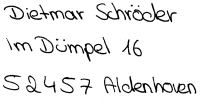 Dietmar Schröder
Im Dümpel 16
52457 Aldenhoven